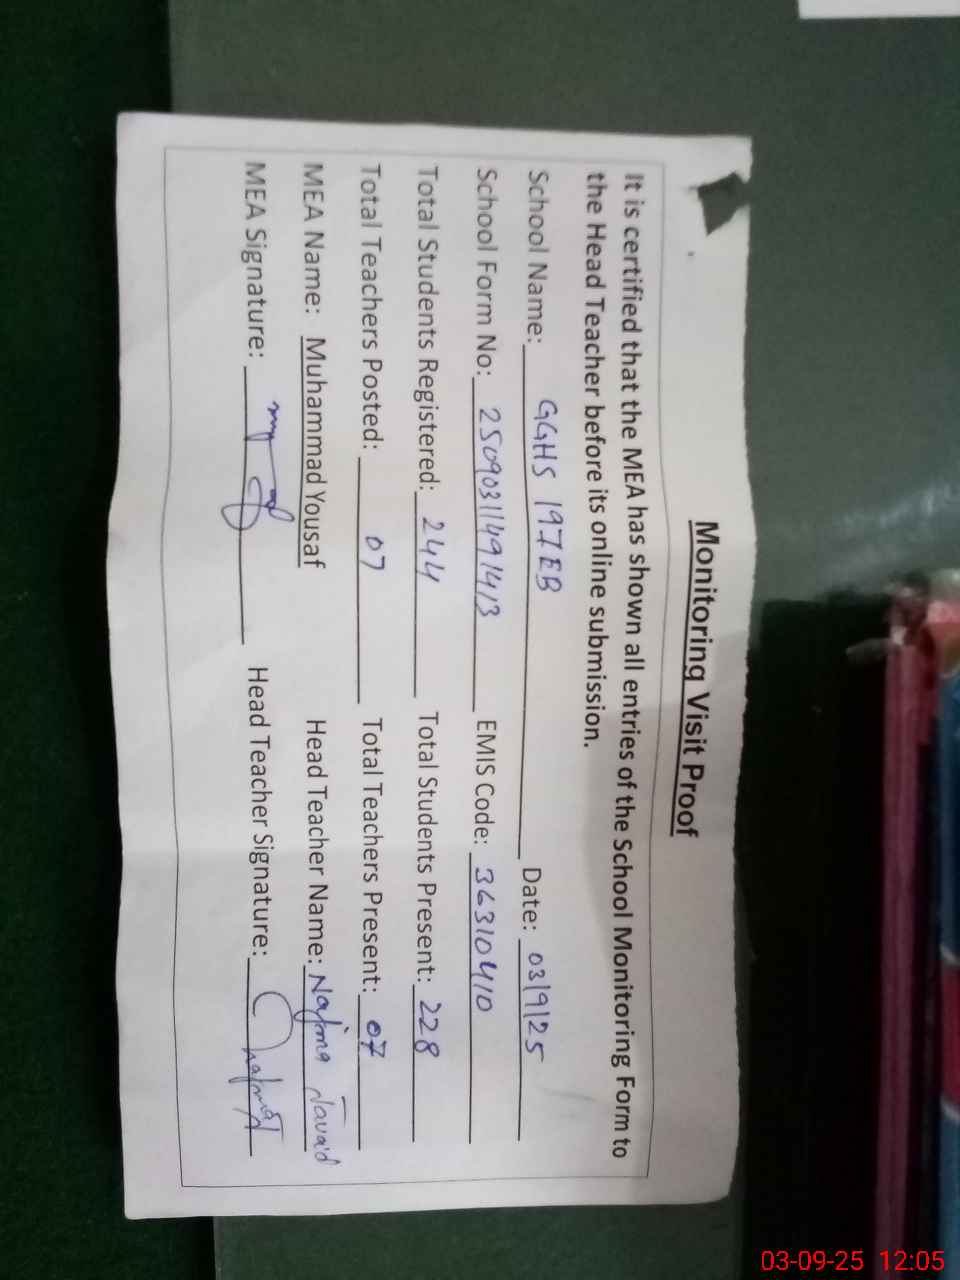 Monitoring Visit Proof
It is certified that the MEA has shown all entries of the School Monitoring Form to
the Head Teacher before its online submission.
School Name: GGHS 197EB Date: 03/9/25
School Form No: 25090311491413 EMIS Code: 36310410
Total Students Registered: 244 Total Students Present: 228
Total Teachers Posted: 07 Total Teachers Present: 07
MEA Name: Muhammad Yousaf Head Teacher Name: Najma Javaid
MEA Signature: Head Teacher Signature:
03-09-25 12:05